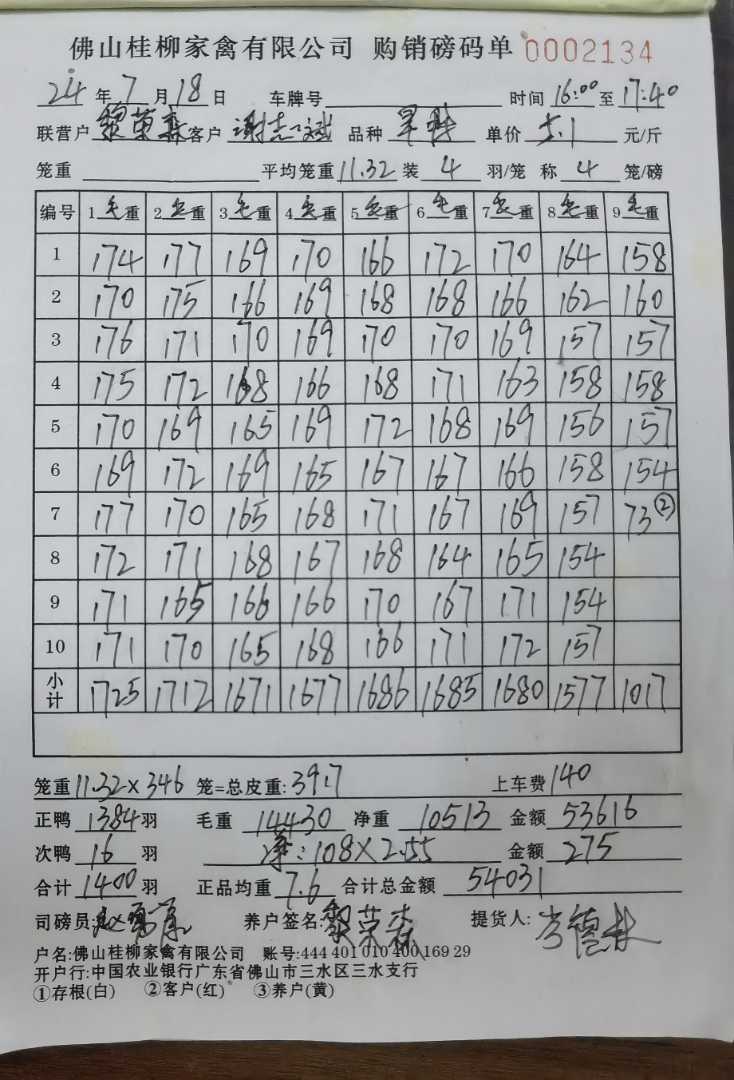 佛山桂柳家禽有限公司 购销磅码单 0002134
24年7月18日 车牌号 时间16:00至17:40
联营户黎荣森客户谢志斌 品种 单价5.1元/斤
笼重 平均笼重11.32装4羽/笼 称4笼/磅
编号 1毛重 2毛重 3毛重 4毛重 5毛重 6毛重 7毛重 8毛重 9毛重
1 174 177 169 170 166 172 170 164 158
2 170 175 166 169 168 168 166 162 160
3 176 171 170 169 170 170 169 157 157
4 175 172 168 166 168 171 163 158 158
5 170 169 165 169 172 168 169 156 157
6 169 172 169 165 167 167 166 158 154
7 177 170 165 168 171 167 169 157 73②
8 172 171 168 167 168 164 165 154
9 171 165 166 166 170 167 171 154
10 171 170 165 168 166 171 172 157
小计 1725 1712 1671 1677 1686 1685 1680 1577 1017
笼重11.32×346 笼=总皮重:3917 上车费140
正鸭1384羽 毛重14430 净重10513 金额53616
次鸭16羽 净:108×2.55 金额275
合计1400羽 正品均重7.6 合计总金额54031
司磅员: 养户签名:黎荣森 提货人:
户名:佛山桂柳家禽有限公司 账号:444 401 010 400 169 29
开户行:中国农业银行广东省佛山市三水区三水支行
①存根(白) ②客户(红) ③养户(黄)